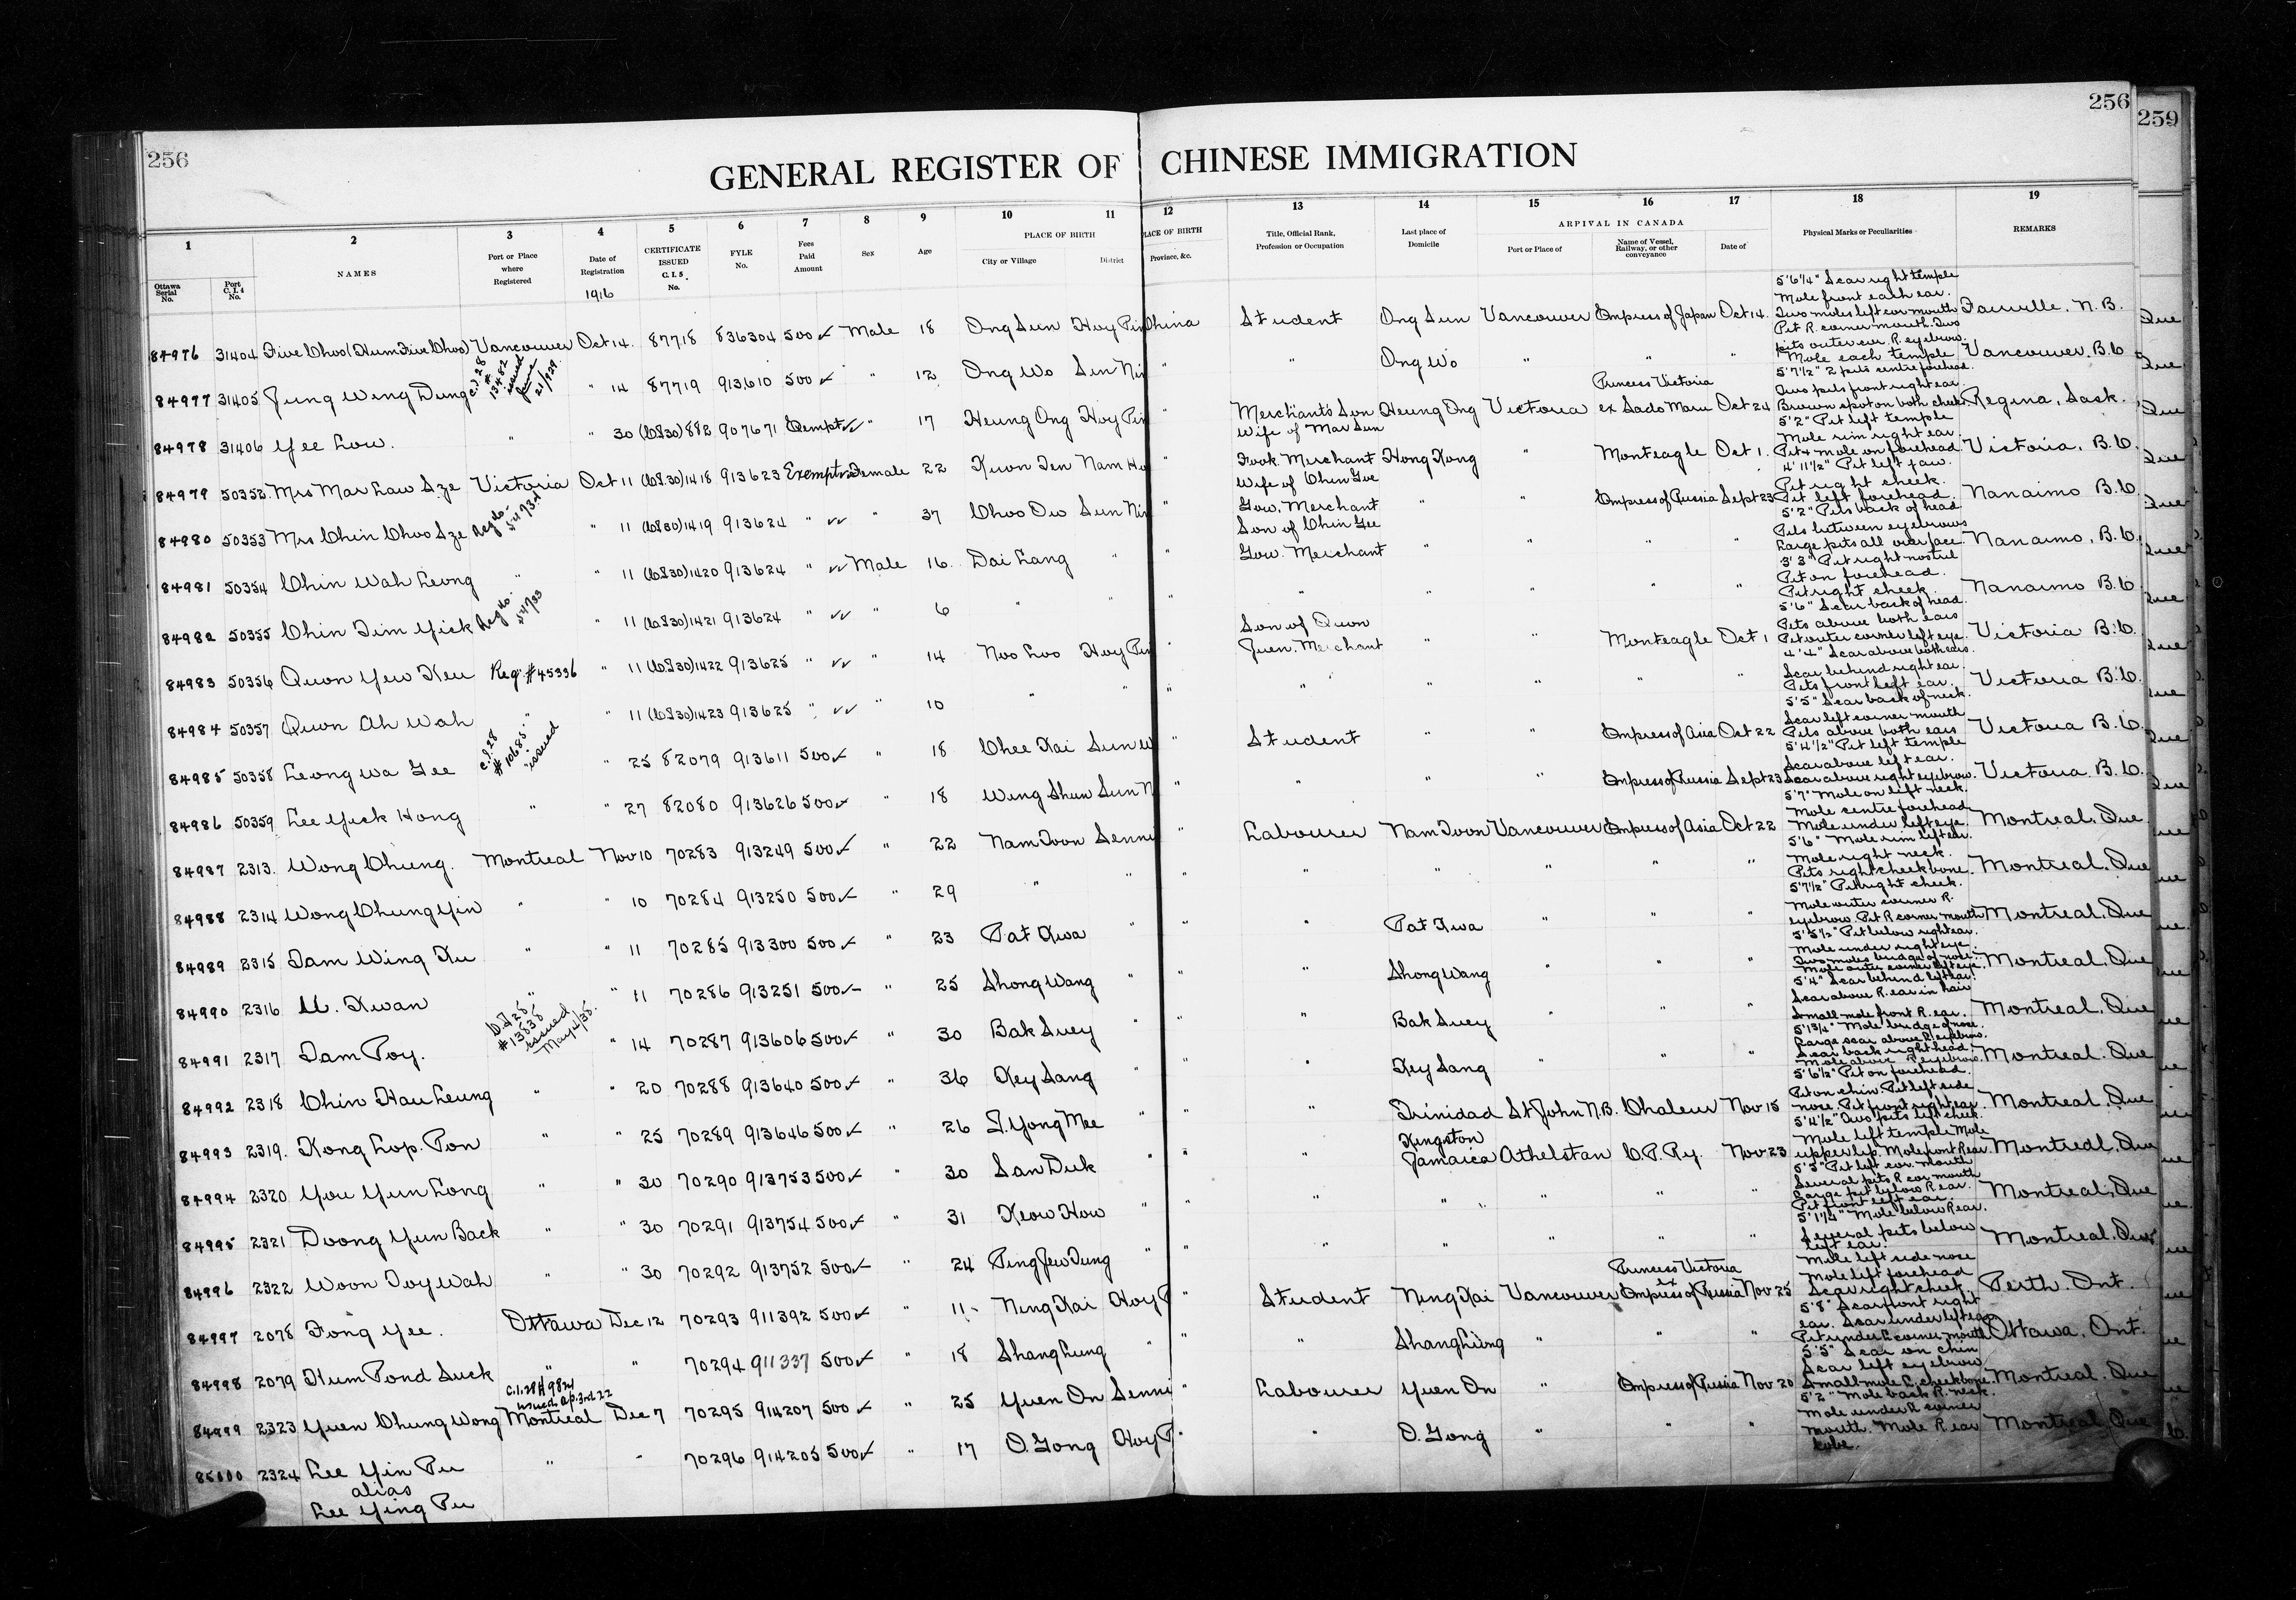 256
256
259
GENERAL REGISTER OF CHINESE IMMIGRATION
1 2 3 4 5 6 7 8 9 10 11 12 13 14 15 16 17 18 19
Ottawa Serial No.
Port C. I. 4 No.
NAMES
Port or Place where Registered
Date of Registration
1916
CERTIFICATE ISSUED C. I. 5. No.
FYLE No.
Fees Paid Amount
Sex
Age
PLACE OF BIRTH
City or Village
District
PLACE OF BIRTH
Province, &c.
Title, Official Rank, Profession or Occupation
Last place of Domicile
ARRIVAL IN CANADA
Port or Place of
Name of Vessel, Railway, or other conveyance
Date of
Physical Marks or Peculiarities
REMARKS
84976 31404 Five Choo (Hum Five Choo) Vancouver Oct 14. 87718 836304 500 Male 18 Ong Sun Hoy Pin China Student Ong Sun Vancouver Empress of Japan Oct 14. 5'6¼" Scar right temple Mole front each ear. Fairville, N.B.
84977 31405 Jung Wing Dung " 14 87719 913610 500 " 12 Ong Wo Sun Nin " " Ong Wo " " " Two moles left cor mouth Pit R. corner mouth. Two pits outer cor. R. eyebrow. Vancouver. B.C
84978 31406 Yee Low. " " 30 (C.I.30) 882 907671 Exempt " 17 Heung Ong Hoy Pin " Merchant's Son Heung Ong Victoria Princess Victoria ex Sado Maru Oct 24 Mole each temple 5'7½" 2 pits centre forehead. Two pits front right ear. Brown spot on both cheeks. Regina, Sask.
84979 50352 Mrs Mar Law Sze Victoria Oct 11 (C.I.30) 1418 913623 Exempt Female 22 Kwon Jen Nam Ho " Wife of Mar Sun Fook. Merchant Hong Kong " Monteagle Oct 1. 5'2" Pit left temple Mole rim right ear. Pit & mole on forehead Victoria, B.C.
84980 50353 Mrs Chin Choo Sze " 11 (C.I.30) 1419 913624 " " 37 Choo Ow Sun Nin " Wife of Chin Gee Gow, Merchant " " Empress of Russia Sept 23 4'11½" Pit left jaw. Pit right cheek. Pit left forehead. Nanaimo B.C.
84981 50354 Chin Wah Leong " " 11 (C.I.30) 1420 913624 " Male 16. Dai Lang " " Son of Chin Gee Gow. Merchant " " " " 5'2" Pits back of head Pits between eyebrows Large pits all over face. Nanaimo, B.C.
84982 50355 Chin Jim Yick " 11 (C.I.30) 1421 913624 " " 6 " " " " " " " " 3'3" Pit right nostril Pit on forehead. Pit right cheek. Nanaimo B.C
84983 50356 Quon Yew Keu Reg. #45336 " 11 (C.I.30) 1422 913625 " " 14 Noo Loo Hoy Pin " Son of Quon Juen. Merchant " " Monteagle Oct 1 5'6" Scar back of head. Pits above both ears Pit outer corner left eye. Victoria B.C.
84984 50357 Quon Ah Wah " " 11 (C.I.30) 1423 913625 " " 10 " " " " " " " " 4'4" Scar above both ears. Scar behind right ear. Pits front left ear. Victoria B.C.
84985 50358 Leong Wa Gee " 25 82079 913611 500 " 18 Chee Kai Sun W " Student " " Empress of Asia Oct 22 5'5" Scar back of neck. Scar left corner mouth Pits above both ears Victoria B.C.
84986 50359 Lee Yick Hong " " 27 82080 913626 500 " 18 Wing Shun Sun N " " " " Empress of Russia Sept 23 5'4½" Pit left temple Scar above left ear. Scar above right eyebrow. Victoria. B.C.
84987 2313. Wong Chung. Montreal Nov 10 70283 913249 500 " 22 Nam Toon Senni " Labourer Nam Toon Vancouver Empress of Asia Oct 22 5'7" Mole on left neck. Mole centre forehead Mole under left eye. Montreal, Que
84988 2314 Wong Chung Yin " " 10 70284 913250 500 " 29 " " " " " " " " 5'6" Mole rim left ear. Mole right neck. Pits right cheek bone. Montreal. Que
84989 2315 Jam Wing Ku " " 11 70285 913300 500 " 23 Pat Kwa " " " Pat Kwa " " " 5'7½" Pit right cheek. Mole outer corner R. eyebrow. Pit R corner mouth Montreal, Que
84990 2316 Kwan " " 11 70286 913251 500 " 25 Shong Wang " " " Shong Wang " " " 5'5½" Pit below right ear. Mole under right eye. Two moles bridge of nose. Mole outer corner left eye. Montreal, Que
84991 2317 Jam Poy. " 14 70287 913606 500 " 30 Bak Suey " " " Bak Suey " " " 5'4" Scar behind left ear Scar above R. ear in hair Small mole front R. ear. Montreal, Que
84992 2318 Chin Hau Leung " " 20 70288 913640 500 " 36 Key Sang " " " Key Sang " " " 5'1¾" Mole bridge of nose. Large scar above R eyebrow. Scar back right head. Mole above R eyebrow. Montreal. Que
84993 2319. Kong Lop. Pon " " 25 70289 913646 500 " 26 S. Yong Mee " " " Trinidad St John N.B. Chaleur Nov 15 5'6½" Pit on forehead. Pit on chin. Pit left side nose. Pit front right ear. Montreal. Que
84994 2320 You Yun Long " " 30 70290 913753 500 " 30 San Duk " " " Kingston Jamaica Athelstan C.P. Ry. Nov 23 5'4½" Two pits left cheek. Mole left temple Mole upper lip. Mole front R ear. Montreal, Que
84995 2321 Doong Yun Back " " 30 70291 913754 500 " 31 Keow How " " " " " " " 5'3" Pit left cor. mouth Several pits R cor mouth Large pit below R ear. Pit front left ear. Montreal, Que
84996 2322 Woon Toy Wah " " 30 70292 913752 500 " 24 Ping Jew Jung " " " " " " " 5'1¼" Mole below R ear. Several pits below left ear. Montreal, Que
84997 2078 Fong Yee. Ottawa Dec 12 70293 911392 500 " 11 Ning Kai Hoy P " Student Ning Kai Vancouver Princess Victoria ex Empress of Russia Nov 25 Mole left side nose Mole left forehead Scar right cheek. Perth. Ont.
84998 2079 Hum Pond Suck " " 70294 911337 500 " 18 Shang Lung " " " Shang Lung " " " 5'8" Scar front right ear. Scar under left ear Pit under L corner mouth Ottawa, Ont.
84999 2323 Yuen Chung Wong Montreal Dec 7 70295 914207 500 " 25 Yuen On Senni " Labourer Yuen On " Empress of Russia Nov 20 5'5" Scar on chin Scar left eyebrow Small mole L. cheekbone. Montreal. Que
85000 2324 Lee Yin Pu " " 70296 914205 500 " 17 O. Gong Hoy P " " O. Gong " " " 5'2" Mole back R. neck. Mole under R corner mouth. Mole R ear lobe. Montreal, Que
alias
Lee Ying Pu
C.I.28 # 13482 issued 21/229
Reg No.
Reg No.
C.I.28 # 10685 issued
C.I.28 #13535 issued May 2/35.
C.I.28 # 9821 issued Ap. 3rd 22